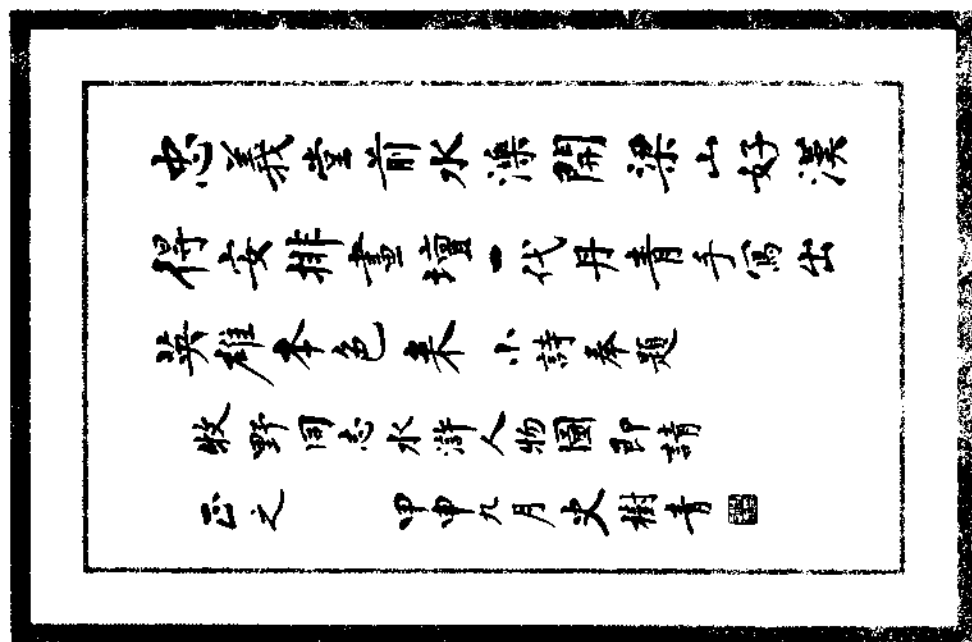 忠義堂前水濼開梁山好漢
得安排畫壇一代丹青手寫出
英雄本色來 小詩奉題
牧野同志水滸人物圖即請
正之 甲申九月史樹青